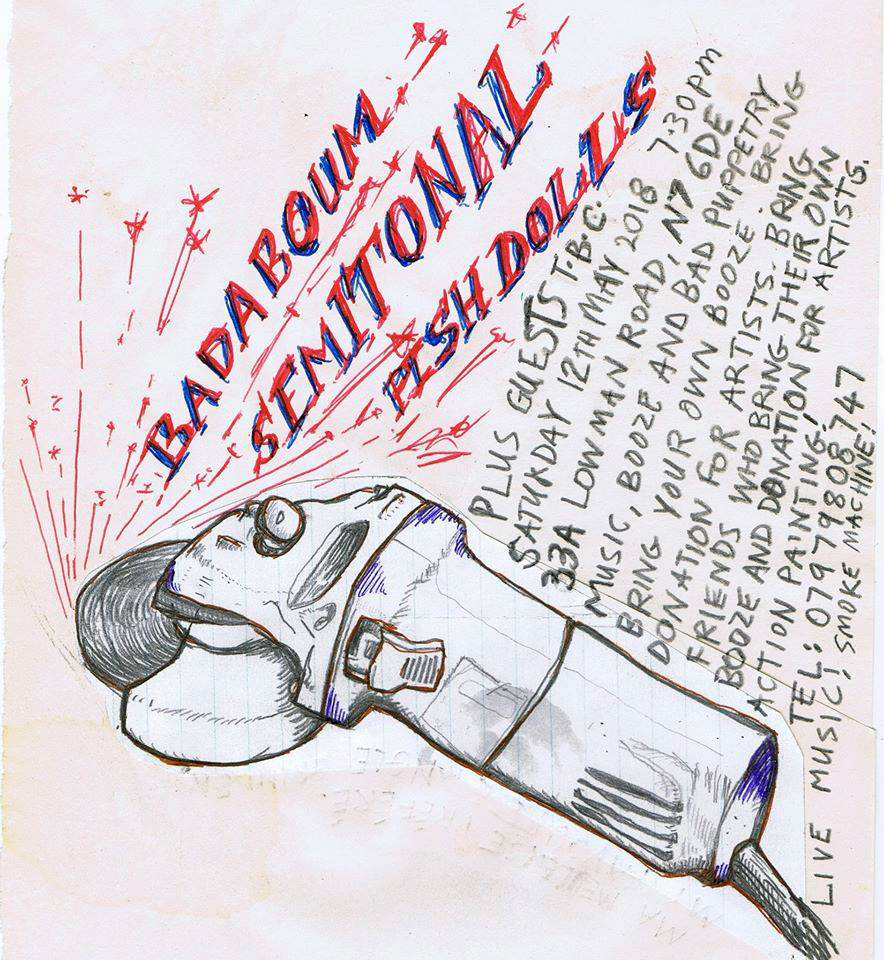 BADABOUM
SEMITONAL
PISHDOLLS
PLUS GUESTS T.B.C.
SATURDAY 12TH MAY 2018 7.30pm
33A LOWMAN ROAD, N7 6DE
MUSIC, BOOZE AND BAD PUPPETRY
BRING YOUR OWN BOOZE. BRING
DONATION FOR ARTISTS. BRING
FRIENDS WHO BRING THEIR OWN
BOOZE AND DONATION FOR ARTISTS.
ACTION PAINTING!
TEL: 07979808747
LIVE MUSIC! SMOKE MACHINE!